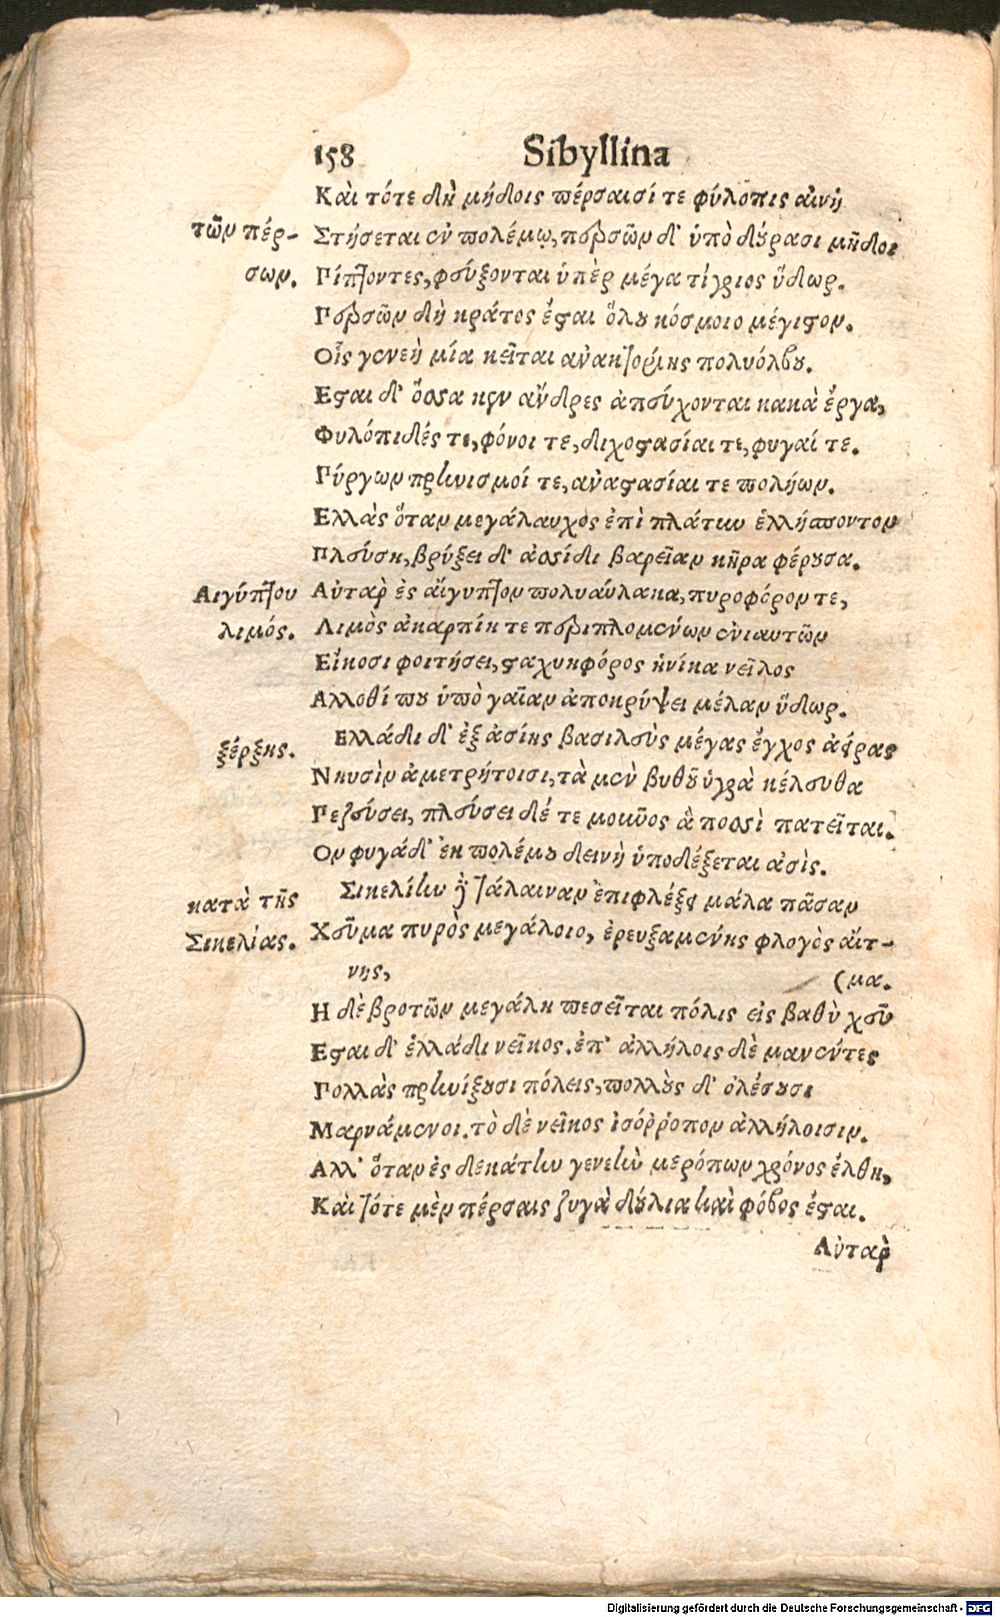 158 Sibyllina
Καὶ τότε δὴ μήδοις πέρσαισί τε φύλοπις αἰνὴ
τῶν πέρ- Στήσεται ἐν πολέμῳ, περσῶν δ' ὑπὸ δούρασι μῆδοι
σων. Πίπτοντες, φεύξονται ὑπὲρ μέγα τίγριος ὕδωρ.
Περσῶν δὴ κράτος ἔσται ὅλου κόσμοιο μέγιστον.
Οἷς γενεὴ μία κεῖται ἀνακτορίης πολυόλβου.
Εσται δ' ὅσσα κεν ἄνδρες ἀπεύχονται κακὰ ἔργα,
Φυλόπιδές τε, φόνοι τε, διχοστασίαι τε, φυγαί τε.
Πύργων πρηνισμοί τε, ἀναστασίαι τε πολήων.
Ελλὰς ὅταν μεγάλαυχος ἐπὶ πλάτην ἑλλήσποντον
Πλεύση, βρύξει δ' ἀσίδι βαρεῖαν κῆρα φέρουσα.
Αιγύπτου Αὐτὰρ ἐς αἴγυπτον πολυαύλακα, πυροφόρον τε,
λιμός. Λιμὸς ἀκαρπίη τε περιπλομένων ἐνιαυτῶν
Εἴκοσι φοιτήσει, σταχυηφόρος ἡνίκα νεῖλος
Αλλοθί που ὑπὸ γαῖαν ἀποκρύψει μέλαν ὕδωρ.
ξέρξης. Ελλάδι δ' ἐξ ἀσίης βασιλεὺς μέγας ἔγχος ἀείρας
Νηυσὶν ἀμετρήτοισι, τὰ μὲν βυθοῦ ὑγρὰ κέλευθα
Πεζεύσει, πλεύσει δέ τε μοιῦος ἃ ποσσὶ πατεῖται.
Ον φυγάδ' ἐκ πολέμου δεινὴ ὑποδέξεται ἀσίς.
κατὰ τῆς Σικελίην δὲ τάλαιναν ἐπιφλέξει μάλα πᾶσαν
Σικελίας. Χεῦμα πυρὸς μεγάλοιο, ἐρευξαμένης φλογὸς αἴτ-
νης, (μα.
Η δὲ βροτῶν μεγάλη πεσεῖται πόλις εἰς βαθὺ χεῦ
Εσται δ' ἑλλάδι νεῖκος. ἐπ' ἀλλήλοις δὲ μανέντες
Πολλὰς πρηνίξουσι πόλεις, πολλοὺς δ' ὀλέσουσι
Μαρνάμενοι. τὸ δὲ νεῖκος ἰσόῤῥοπον ἀλλήλοισιν.
Αλλ' ὅταν ἐς δεκάτην γενεὴν μερόπων χρόνος ἔλθη,
Καὶ τότε μὲν πέρσαις ζυγὰ δούλια καὶ φόβος ἔσται.
Αὐτὰρ
Digitalisierung gefördert durch die Deutsche Forschungsgemeinschaft - DFG